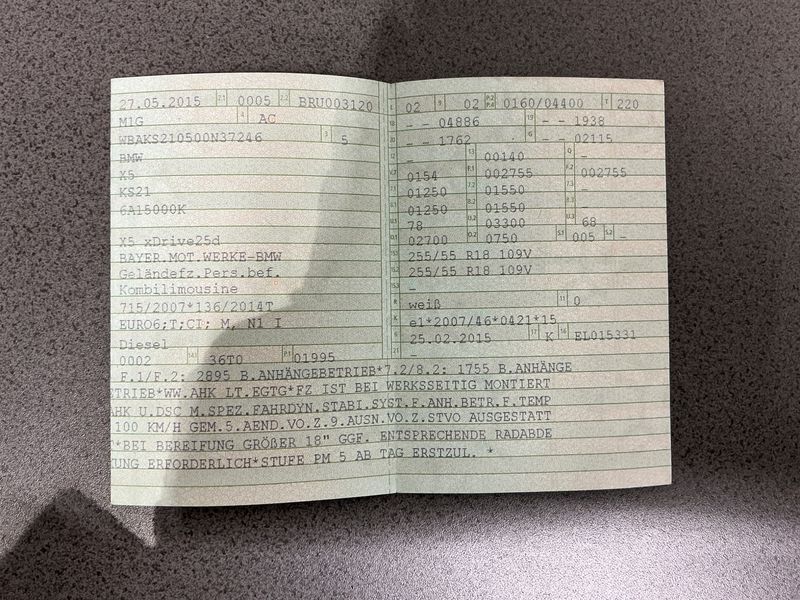 27.05.2015 2.1 0005 2.2 BRU003120
M1G 4 AC
WBAKS210500N37246 3 5
BMW
X5
KS21
6A15000K
X5 xDrive25d
BAYER.MOT.WERKE-BMW
Geländefz.Pers.bef.
Kombilimousine
715/2007*136/2014T
EURO6;T;CI; M, N1 I
Diesel
0002 14.1 36T0 P.1 01995
L 02 9 02 P.2 P.4 0160/04400 T 220
18 - - 04886 19 - - 1938
20 - - 1762 G - - 02115
12 - 13 00140 Q -
V.7 0154 F.1 002755 F.2 002755
7.1 01250 7.2 01550 7.3 -
8.1 01250 8.2 01550 8.3 -
U.1 78 U.2 03300 U.3 68
O.1 02700 O.2 0750 S.1 005 S.2 -
15.1 255/55 R18 109V
15.2 255/55 R18 109V
15.3 -
R weiß 11 0
K e1*2007/46*0421*15
6 25.02.2015 17 K 16 EL015331
21 -
F.1/F.2: 2895 B.ANHÄNGEBETRIEB*7.2/8.2: 1755 B.ANHÄNGE
TRIEB*WW.AHK LT.EGTG*FZ IST BEI WERKSSEITIG MONTIERT
AHK U.DSC M.SPEZ.FAHRDYN.STABI.SYST.F.ANH.BETR.F.TEMP
100 KM/H GEM.5.AEND.VO.Z.9.AUSN.VO.Z.STVO AUSGESTATT
*BEI BEREIFUNG GRÖßER 18" GGF. ENTSPRECHENDE RADABDE
UNG ERFORDERLICH*STUFE PM 5 AB TAG ERSTZUL. *